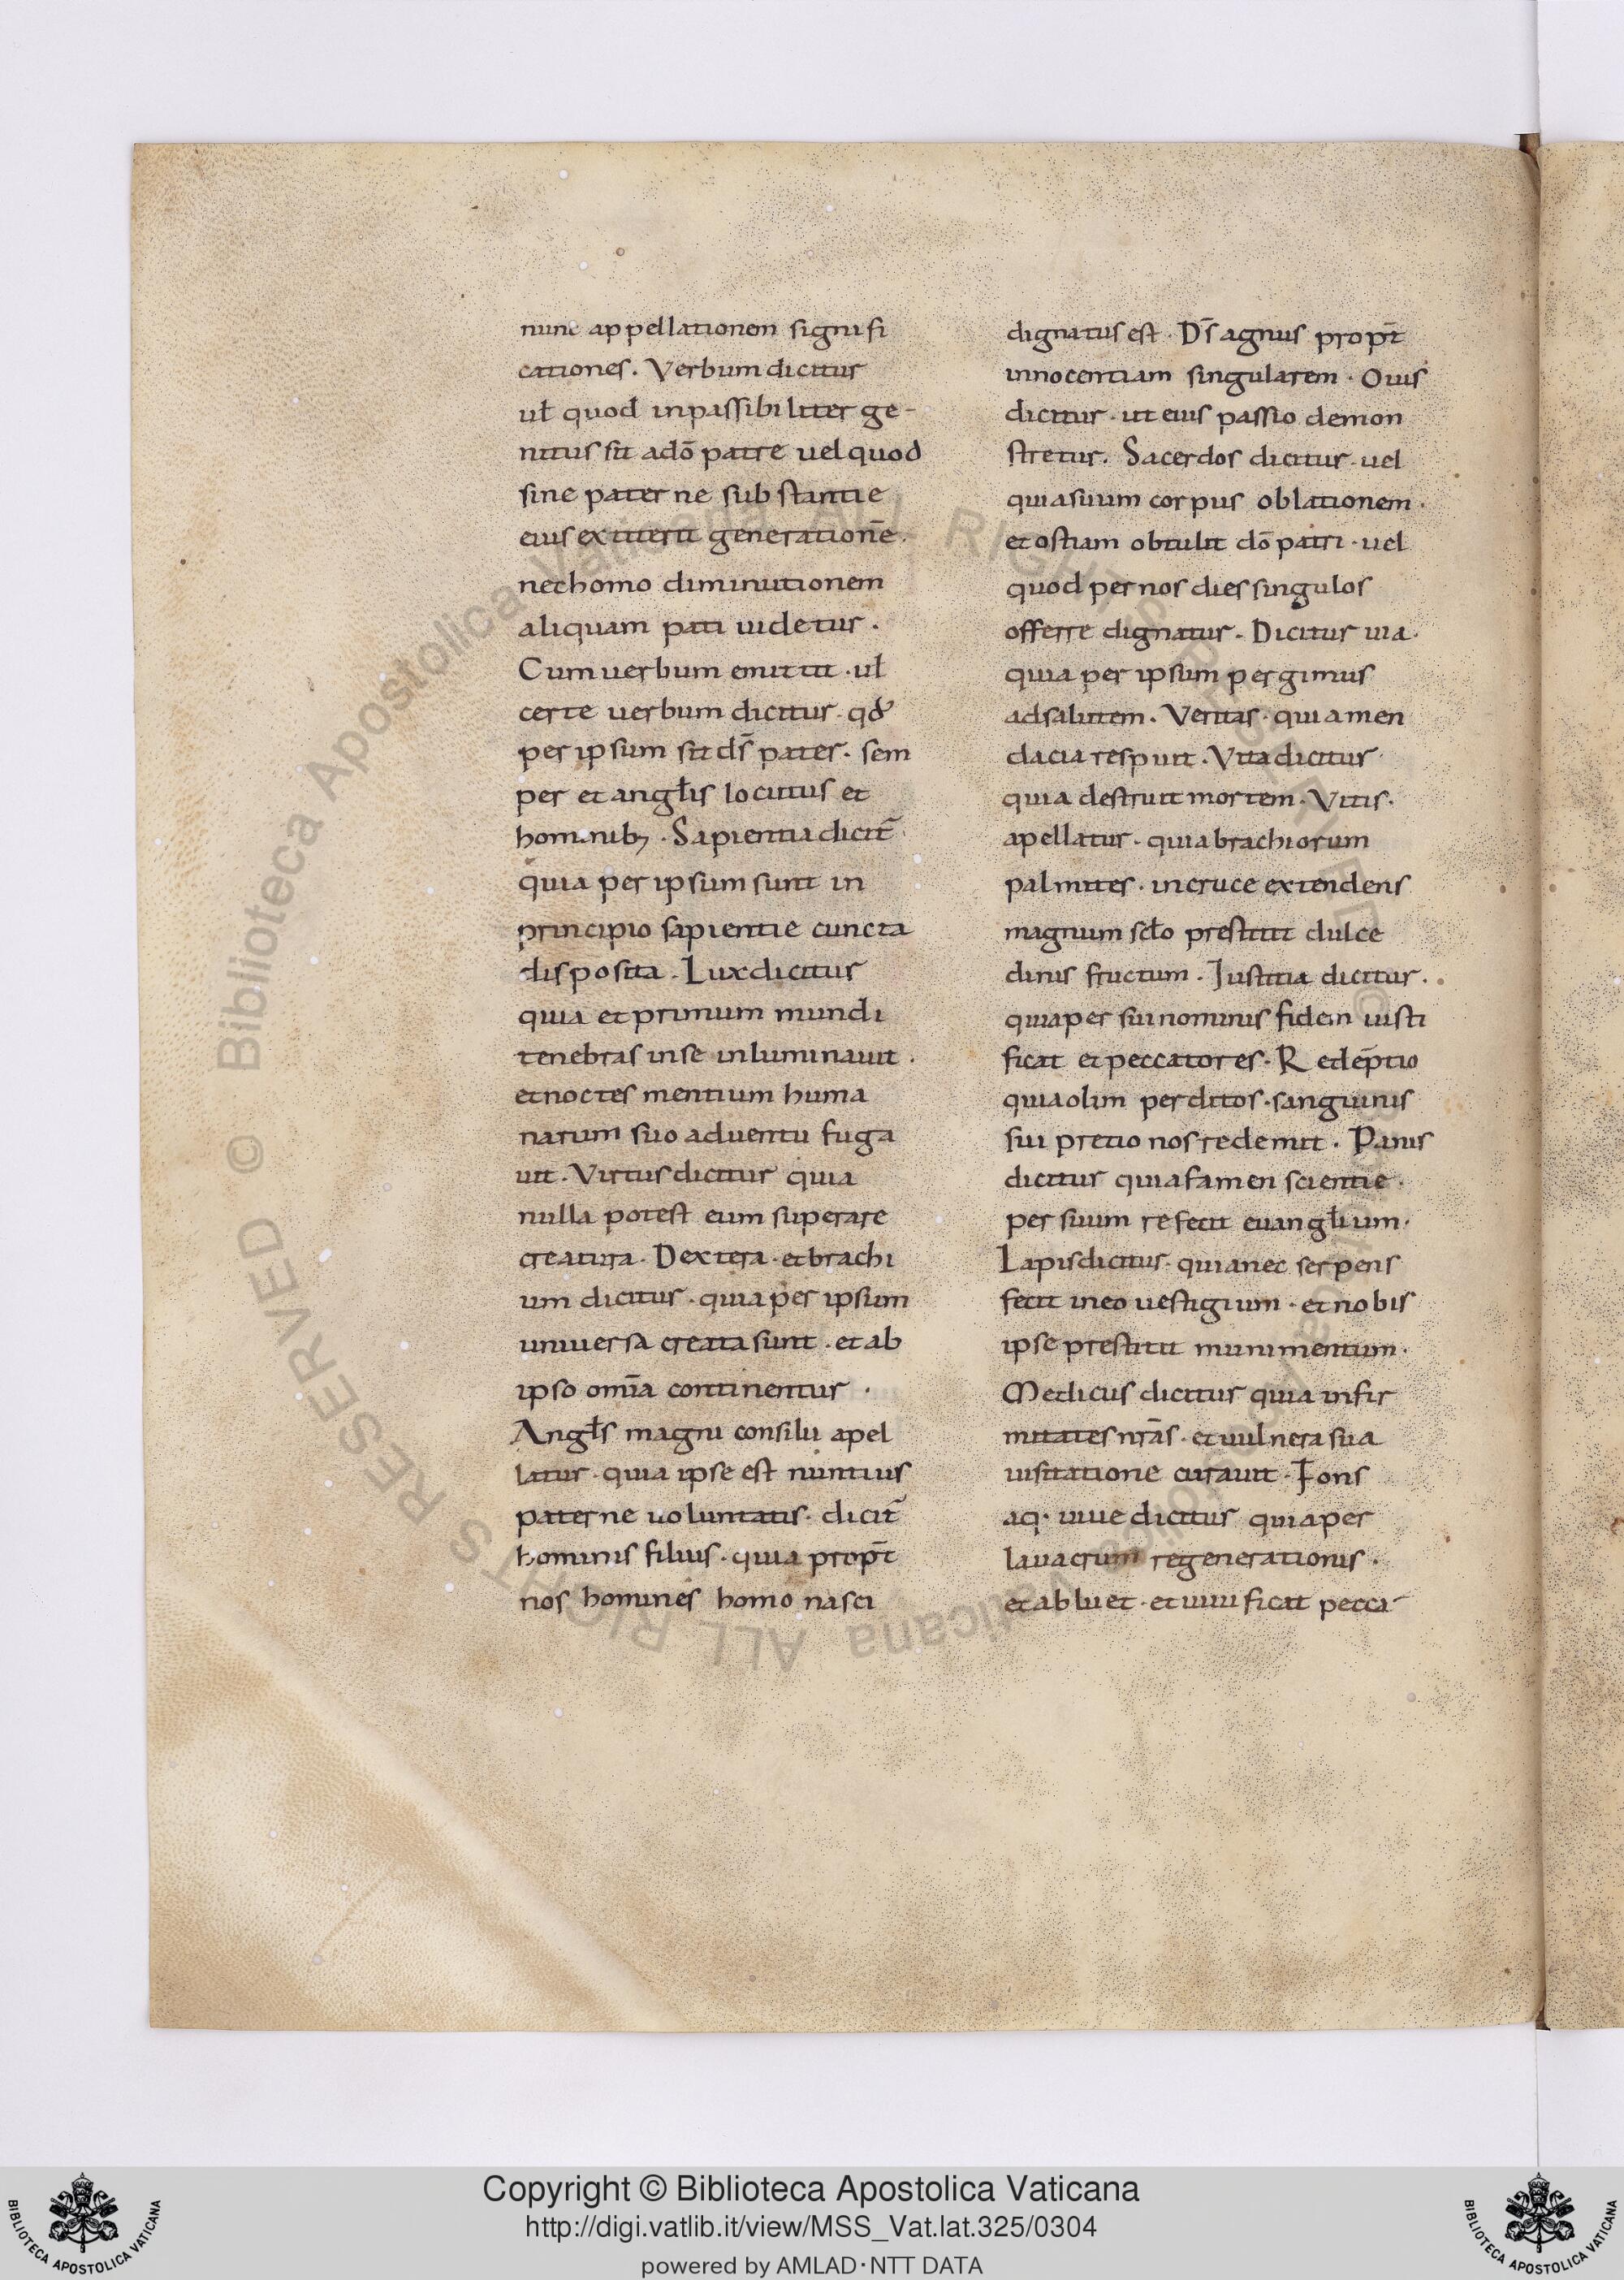 nunc appellationem signifi
cationes. Verbum dicitur
ul̄ quod inpassibiliter ge-
nitus sit adō patre uel quod
sine paterne substantie
eius extiterit generationē.
nec homo diminutionem
aliquam pati uidetur.
Cum uerbum emittit · ul̄
certe uerbum dicitur · qđ
per ipsum sit ds̄ pater. sem
per et angl̄is locutus et
hominib; . Sapientia dicit̄
quia per ipsum sunt in
principio sapientie cuncta
disposita. Lux dicitur
quia et primum mundi
tenebras in se inluminauit.
et noctes mentium huma
narum suo aduentu fuga
uit. Virtus dicitur quia
nulla potest eum superare
creatura. Dextera · et brachi
um dicitur · quia per ipsum
uniuersa creata sunt · et ab
ipso om̄ia continentur ·
Angl̄s magni consilii apel
latur · quia ipse est nuntius
paterne uoluntatis · dicit̄
hominis filius · quia prop̄t
nos homines homo nasci
dignatus est · Ds̄ agnus prop̄t
innocentiam singularem · Ouis
dicitur · ut eius passio demon
stretur. Sacerdos dicitur · uel
quia suum corpus oblationem ·
et ostiam obtulit dō patri · uel
quod per nos dies singulos
offerre dignatur. Dicitur uia ·
quia per ipsum pergimus
ad salutem. Veritas · quia men
dacia respuit. Vita dicitur ·
quia destruit mortem. Vitis ·
apellatur · quia brachiorum
palmites · in cruce extendens
magnum scl̄o prestitit dulce
dinis fructum. Justitia dicitur ·
quia per sui nominis fidem iusti
ficat et peccatores · Redēptio
quia olim perditos · sanguinis
sui pretio nos redemit. Panis
dicitur quia famen scientie ·
per suum refecit euangl̄ium ·
Lapis dicitur · quia nec serpens
fecit in eo uestigium · et nobis
ipse prestitit munimentum ·
Medicus dicitur quia infir
mitates nrās · et uulnera sua
uisitatione curauit · Fons
aq · uiue dicitur quia per
lauacrum regenerationis ·
et abluet · et uiuificat pecca-
© Biblioteca Apostolica Vaticana ALL RIGHTS RESERVED
Copyright © Biblioteca Apostolica Vaticana
http://digi.vatlib.it/view/MSS_Vat.lat.325/0304
powered by AMLAD·NTT DATA
BIBLIOTECA APOSTOLICA VATICANA
BIBLIOTECA APOSTOLICA VATICANA